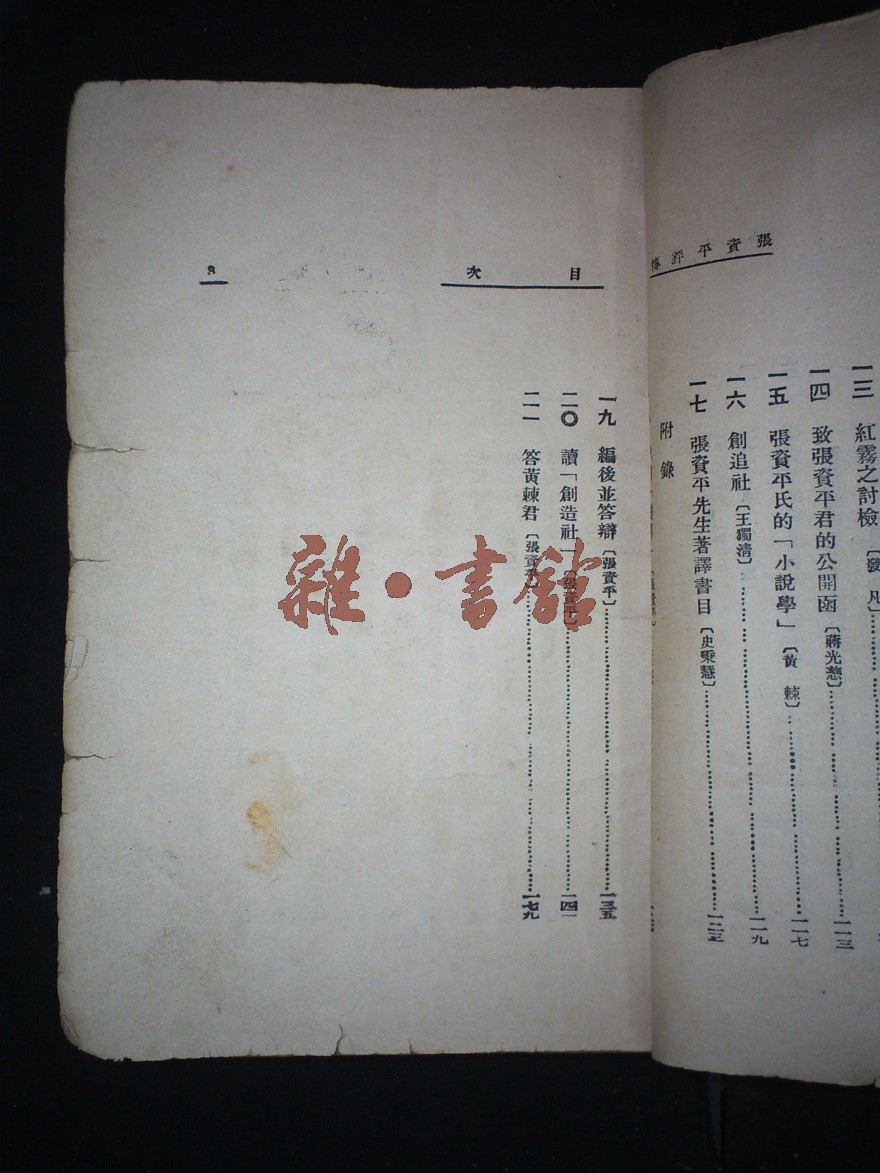 張資平評傳
一三 紅霧之討檢〔發 凡〕
一四 致張資平君的公開函〔蔣光慈〕 一一三
一五 張資平氏的「小說學」〔黃 棘〕 一一七
一六 創追社〔王獨清〕 一一九
一七 張資平先生著譯書目〔史秉慧〕 一二三
附錄
目次
一九 編後並答辯〔張資平〕 一三五
二〇 讀「創造社」〔張資平〕 一四一
二一 答黃棘君〔張資平〕 一七九
3
雜·書館